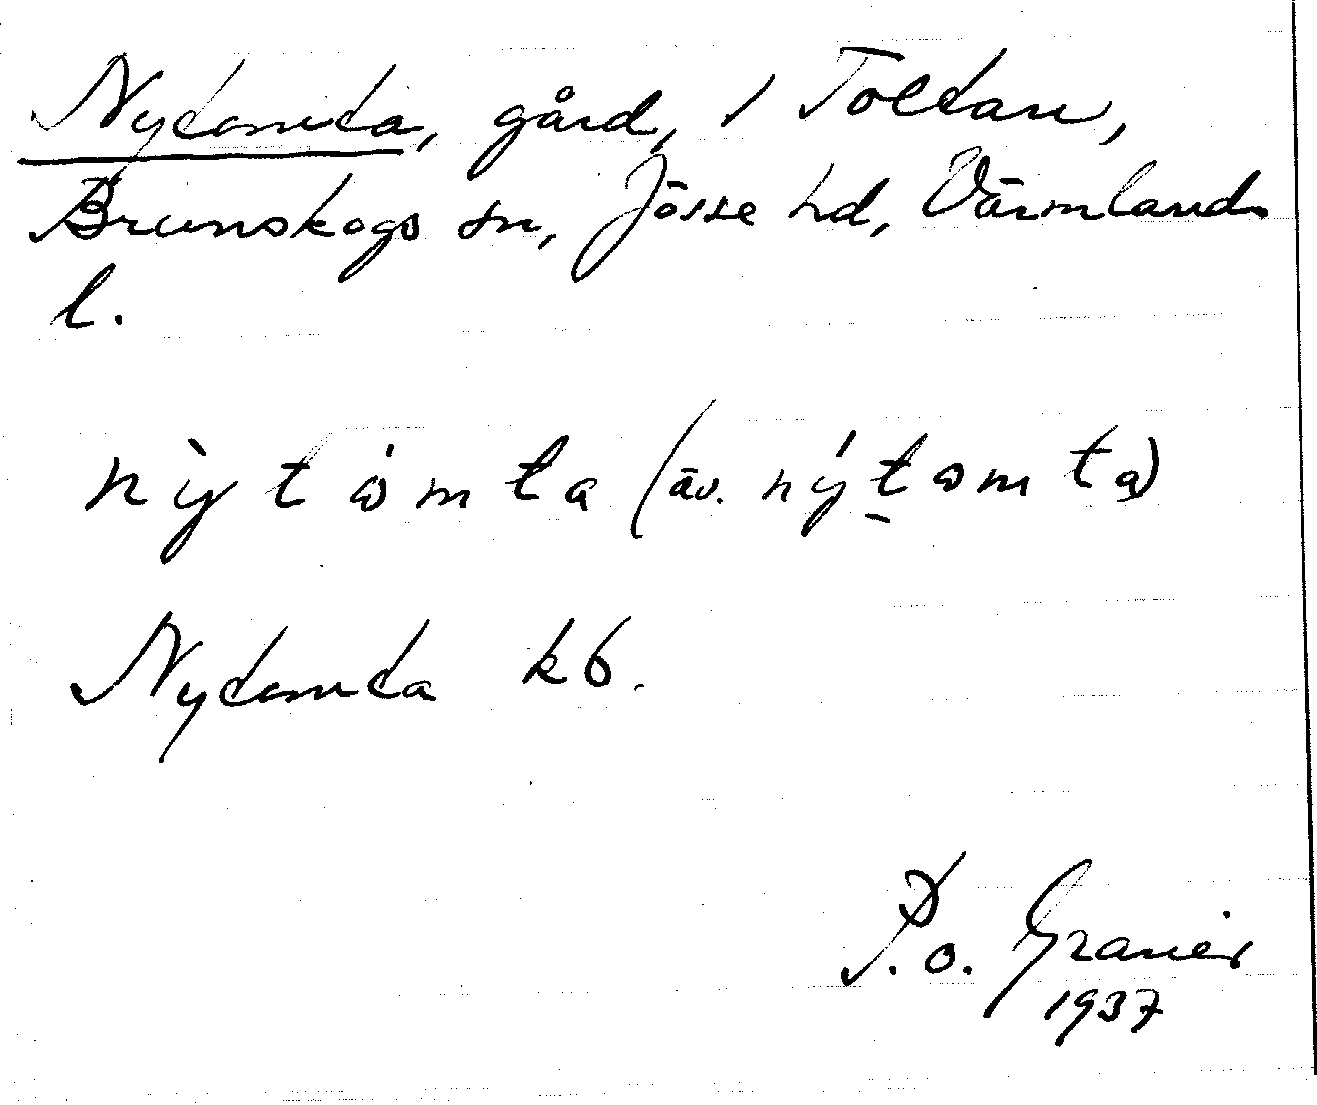 Nytomta, gård, / Toltan,
Brunskogs sn, Jösse hd, Värmlands
l.
nỳtωmta (äv. nýtωmta)
Nytomta kb.
P.o. Granér
1937